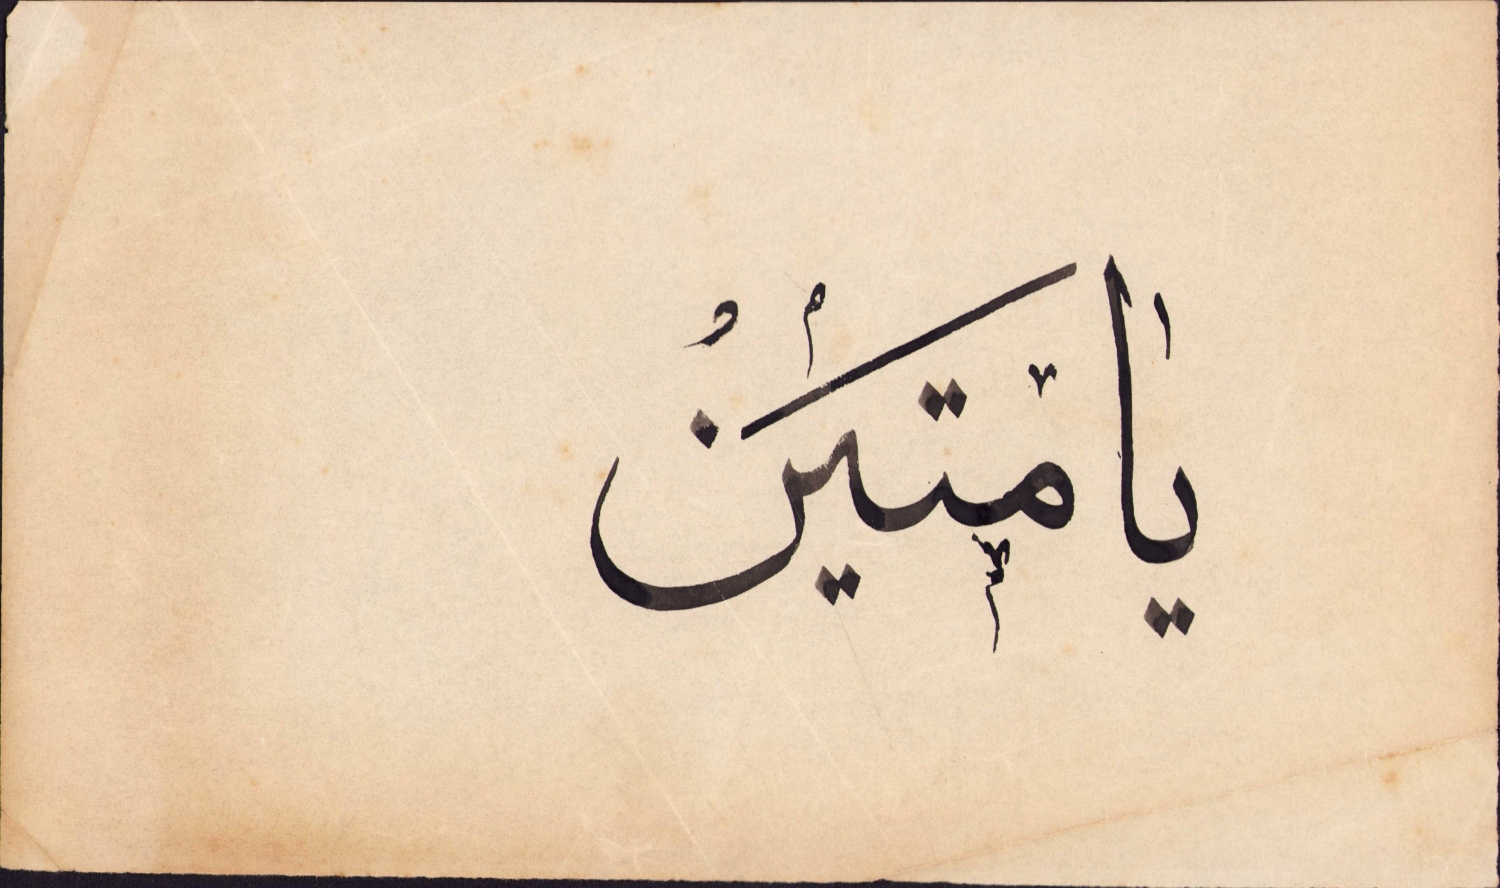 يا متينُ